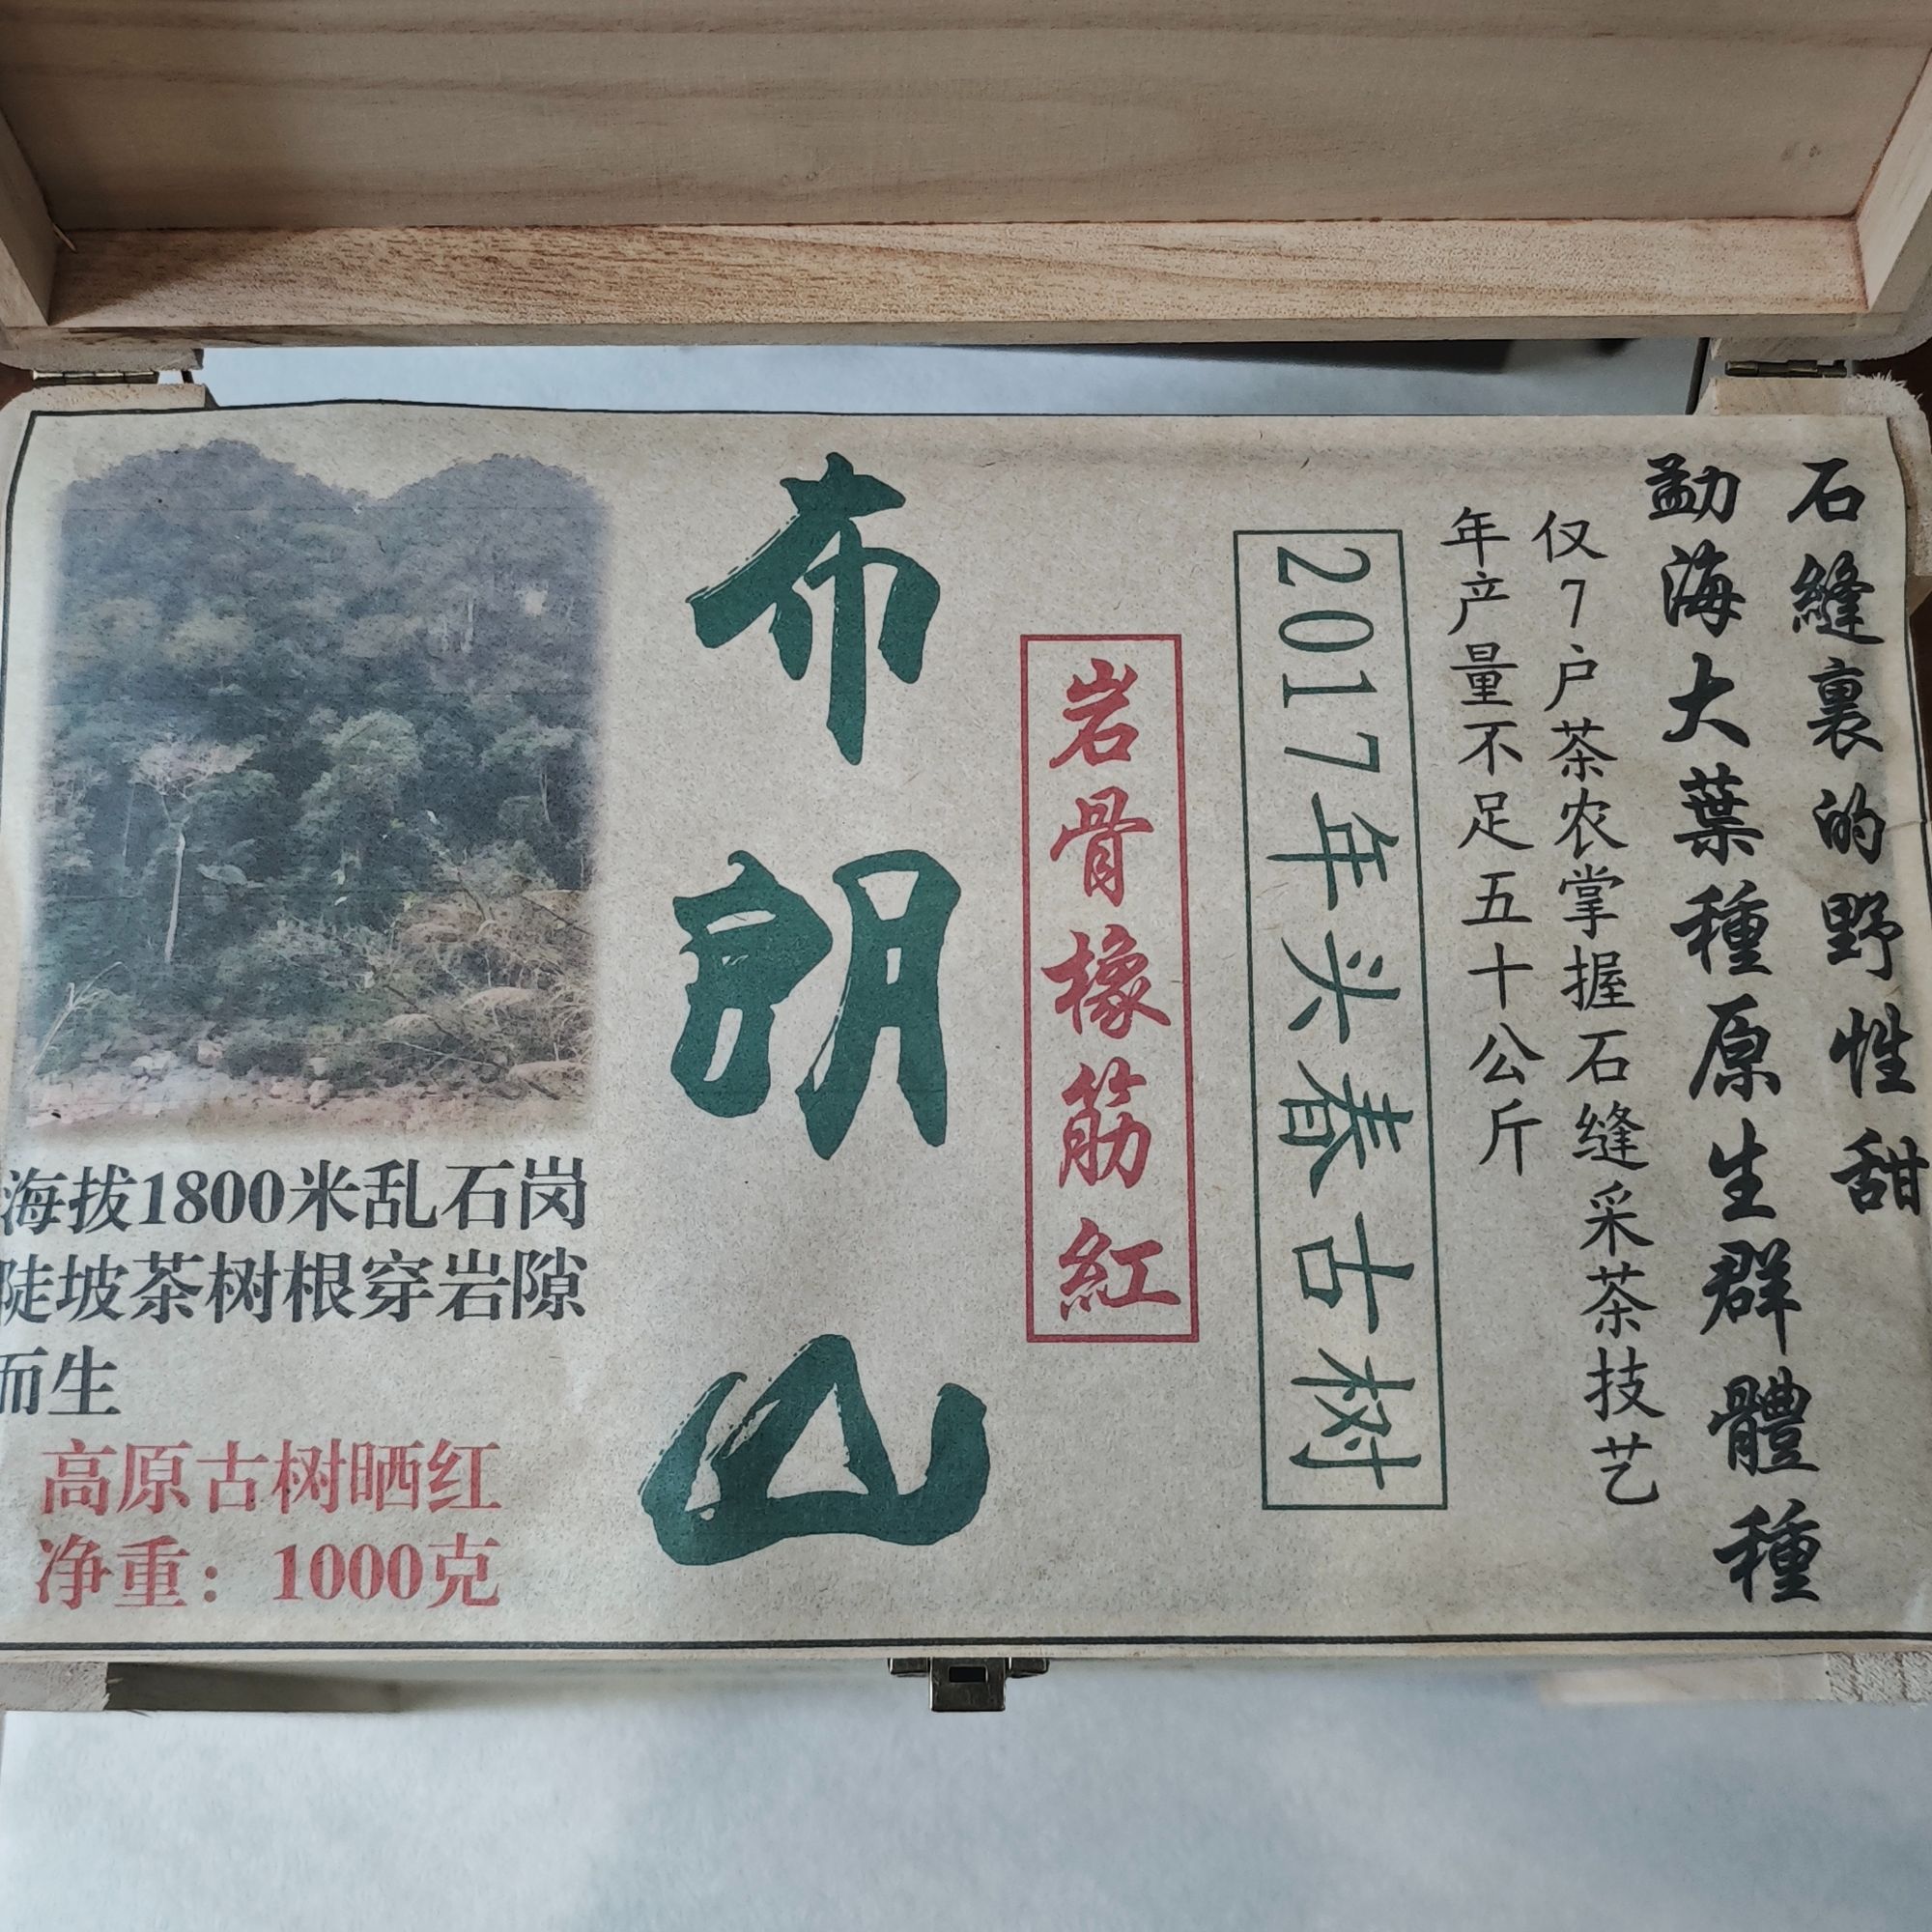 石縫裏的野性甜
勐海大葉種原生群體種
仅7户茶农掌握石缝采茶技艺
年产量不足五十公斤
2017年头春古树
岩骨橡筋紅
布朗山
海拔1800米乱石岗
陡坡茶树根穿岩隙
而生
高原古树晒红
净重：1000克